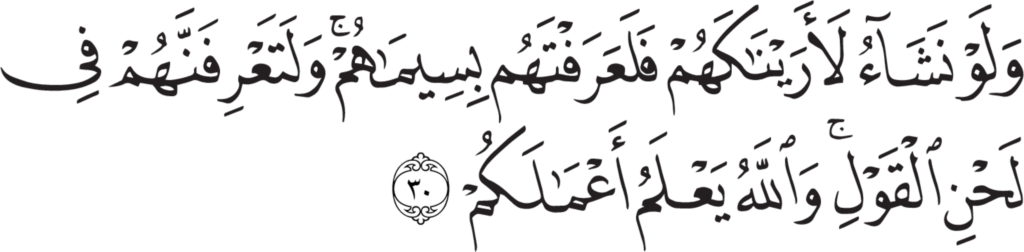 وَلَوْ نَشَآءُ لَأَرَيْنَٰكَهُمْ فَلَعَرَفْتَهُم بِسِيمَٰهُمْ ۚ وَلَتَعْرِفَنَّهُمْ فِى
لَحْنِ ٱلْقَوْلِ ۚ وَٱللَّهُ يَعْلَمُ أَعْمَٰلَكُمْ ٣٠